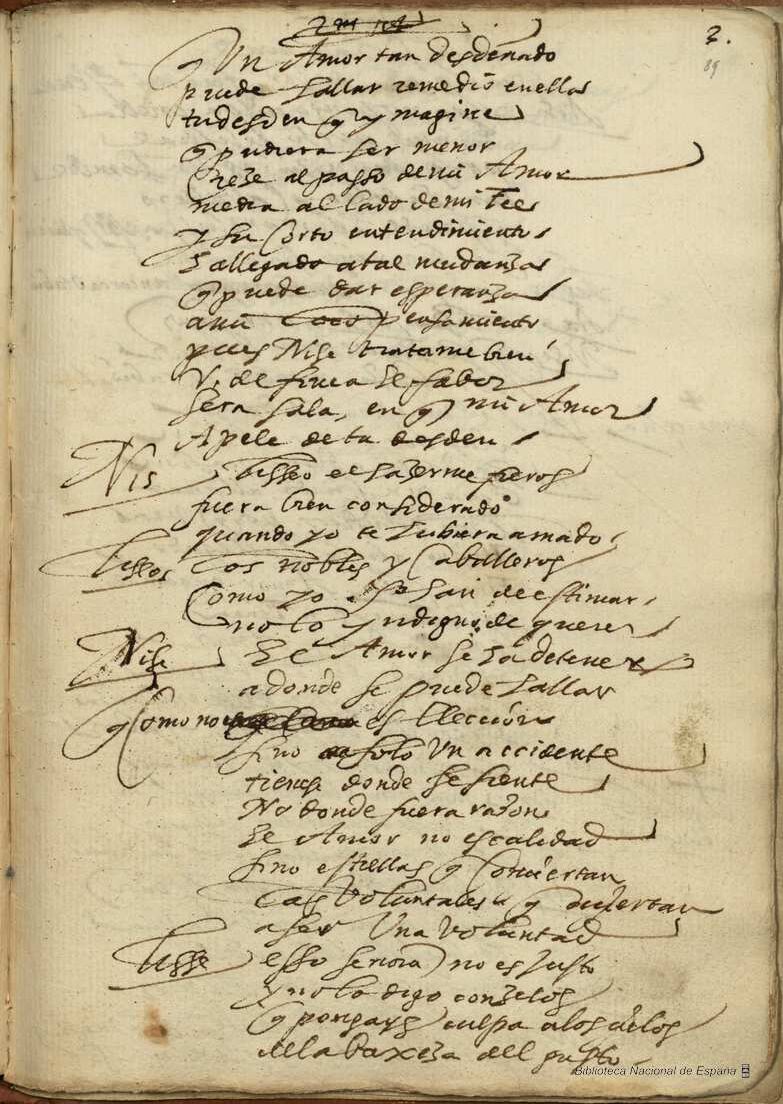 2.
89
q Un Amor tan desdeñado
puede hallar remedio en ellas
tu desden q ymagine
q pudiera ser menor
Crece al passo de mi Amor
medra al lado de mi Fee
y su Corto entendimiento
a llegado a tal mudanza
q puede dar esperanza
a mi loco pensamiento
pues Nise tratame bien
V. de finea el fabor
sera sala, en q mi Amor
Apele de tu desden
Nis Lisseo el hazerme fieros
fuera bien considerado
quando yo te hubiera amado
Lisseo Los nobles y Caballeros
Como yo se han de estimar
no lo yndigno de querer
Nise El Amor se ha de tener
adonde se puede hallar
q Como no es Eleccion
sino solo Un accidente
tienese donde se siente
No donde fuera razon
El Amor no es calidad
sino estrellas q Conciertan
las Voluntades q diviertan
a ser Una Voluntad
Lisse esso señora no es Justo
y no lo digo con zelos
q pongays culpa a los cielos
de la baxeza del gusto
Biblioteca Nacional de España